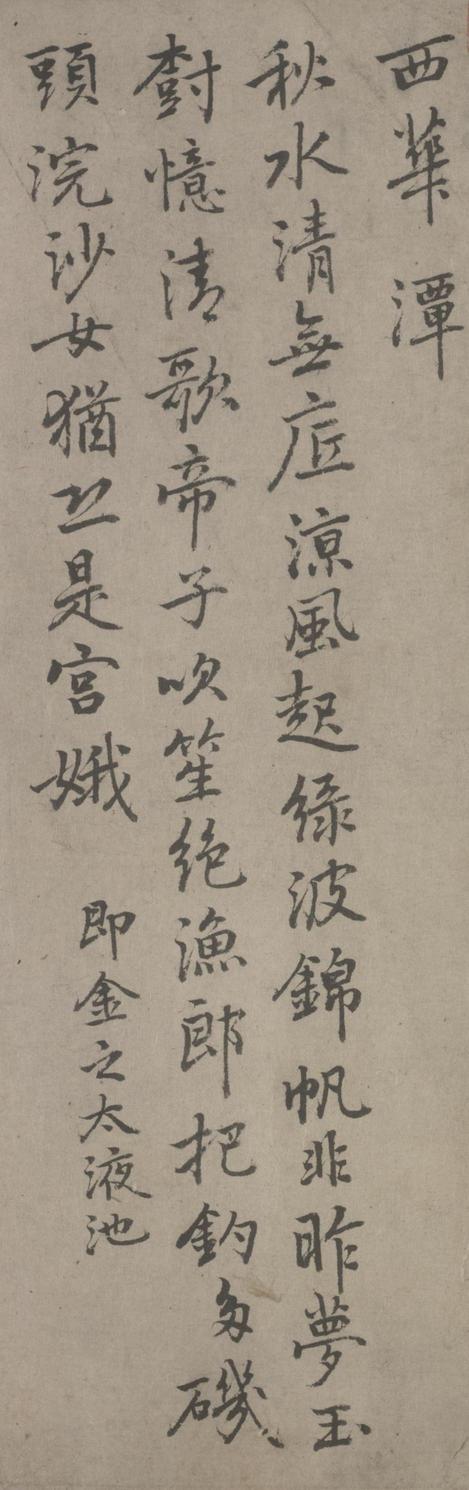 西華潭
秋水清無底涼風起綠波錦帆非昨夢玉
樹憶清歌帝子吹笙絕漁郎把釣多磯
頭浣沙女猶恐是宮娥
即金之太液池